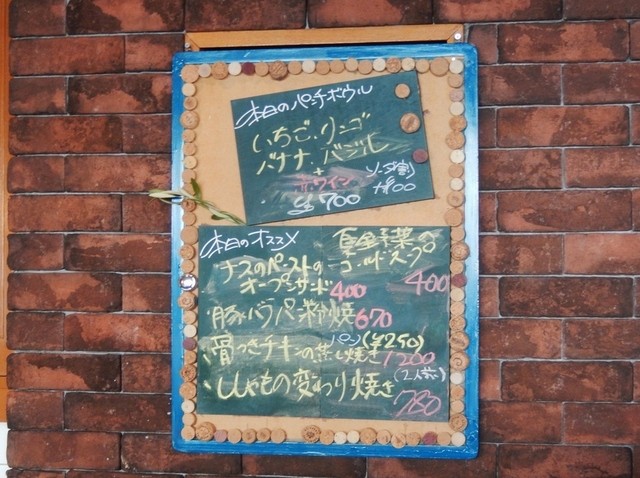 本日のパンチボウル
いちご、リンゴ
バナナ、バジル
+
赤ワイン
¥700
ソーダ割
本日のオススメ
夏野菜の
ゴールドスープ
400
ナスのペーストの
オープンサンド 400
豚バラパン粉焼 670
パン(¥250)
・骨つきチキンの蒸し焼き 1200
(2人前)
・ししゃもの変わり焼き 780